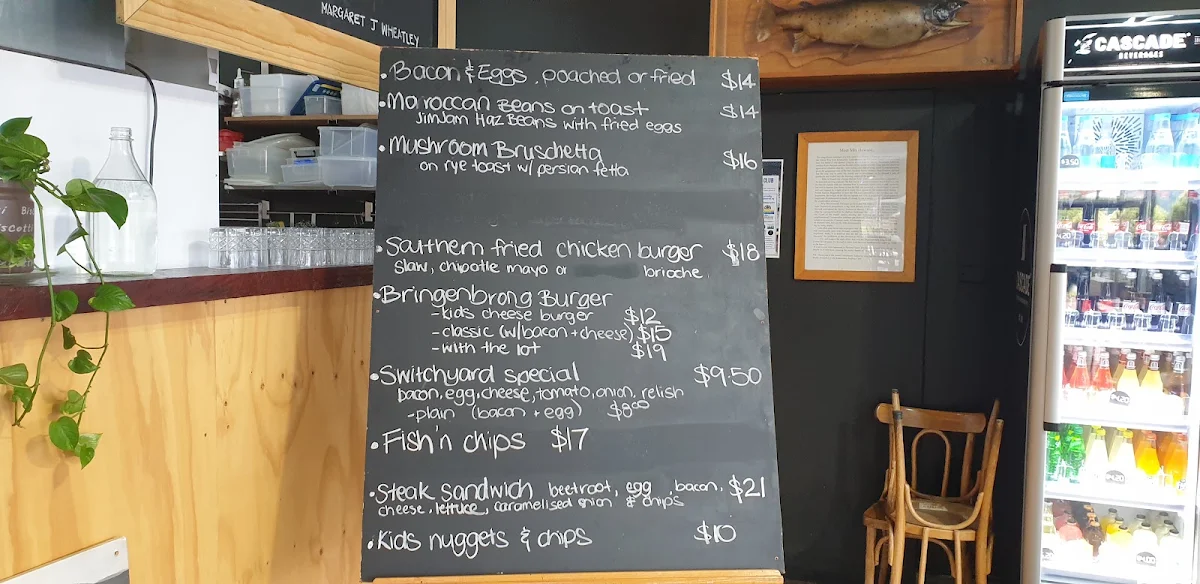 MARGARET J WHEATLEY
• Bacon & Eggs, poached or fried $14
• Moroccan Beans on toast $14
JimJam Haz Beans with fried eggs
• Mushroom Bruschetta $16
on rye toast w/ persian fetta
• Southern fried chicken burger $18
slaw, chipotle mayo or brioche.
• Bringenbrong Burger
- kids cheese burger $12
- classic (w/bacon + cheese) $15
- with the lot $19
• Switchyard special $9.50
bacon, egg, cheese, tomato, onion, relish
- plain (bacon + egg) $8.00
• Fish 'n chips $17
• Steak sandwich beetroot, egg bacon, $21
cheese, lettuce, caramelised onion & chips
• Kids nuggets & chips $10
CASCADE
BEVERAGES
$3.50
4.20
$4.20